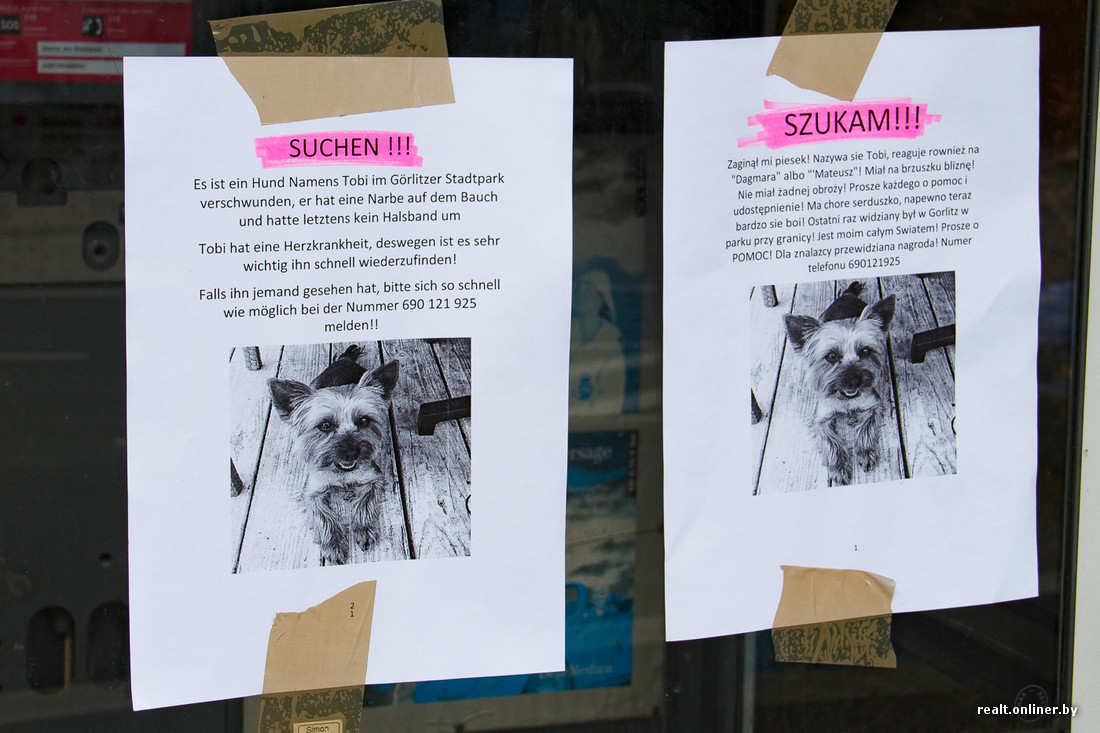 SOS
SUCHEN !!!
Es ist ein Hund Namens Tobi im Görlitzer Stadtpark
verschwunden, er hat eine Narbe auf dem Bauch
und hatte letztens kein Halsband um
Tobi hat eine Herzkrankheit, deswegen ist es sehr
wichtig ihn schnell wiederzufinden!
Falls ihn jemand gesehen hat, bitte sich so schnell
wie möglich bei der Nummer 690 121 925
melden!!
2
1
Simon
SZUKAM!!!
Zaginął mi piesek! Nazywa sie Tobi, reaguje rownież na
"Dagmara" albo "'Mateusz"! Miał na brzuszku bliznę!
Nie miał żadnej obroży! Prosze każdego o pomoc i
udostępnienie! Ma chore serduszko, napewno teraz
bardzo sie boi! Ostatni raz widziany był w Gorlitz w
parku przy granicy! Jest moim całym Swiatem! Prosze o
POMOC! Dla znalazcy przewidziana nagroda! Numer
telefonu 690121925
1
realt.onliner.by